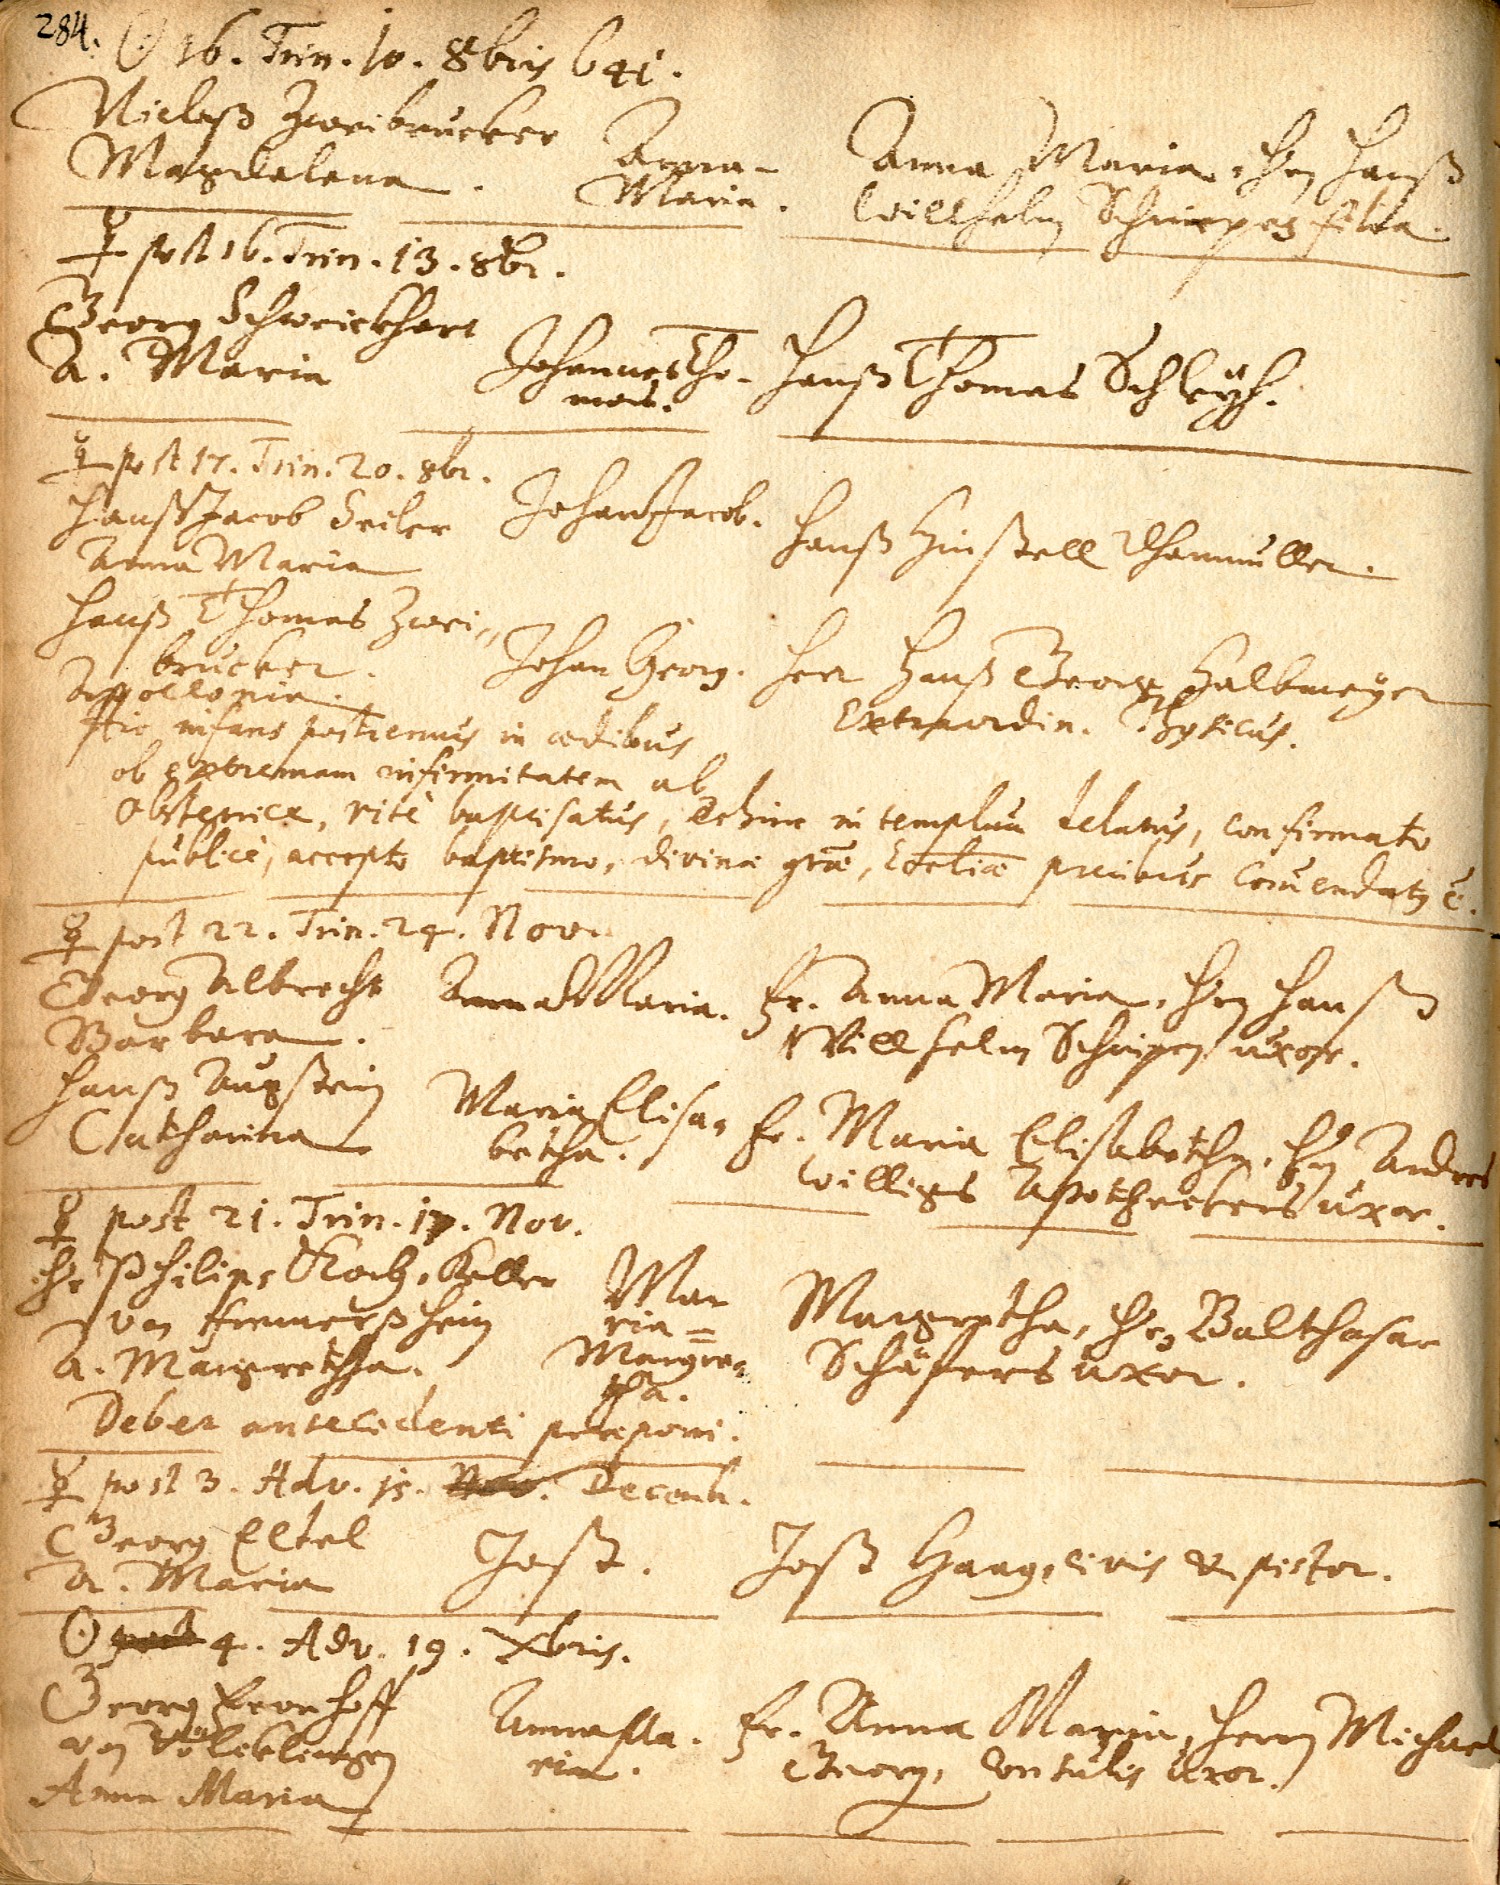 284.
☉ 16. Trin. 10. 8bris 641.
Niclaß Zweibrucker
Magdalena.
Anna-
Maria.
Anna Maria, Hn Hanß
Willhelm Schnepen filia.
♀ post 16. Trin. 13. 8br.
Georg Schweickhart
A. Maria
Johannes Tho-
mas.
Hanß Thomas Schleÿh.
♀ post 17. Trin. 20. 8br.
Hanß Jacob Seiler
Anna Maria
Johan Jacob.
Hanß
Hanß Thomas Zwei-
brucker.
Appollonia.
Johan Georg.
Herr Hanß Georg Halbmeÿer
Extraordin. Physicus.
Hic infans postremus in ædibus
ob extremam infirmitatem ab
obstetrice, ritè baptisatus, dehinc in templum delatus, confirmato
publicè, accepto baptismo, divinæ grãe, Eccliæ precibus comendatq ẽ.
♀ post 22. Trin. 24. Nov.
Georg Albrecht
Barbara.
Anna Maria.
Fr. Anna Maria, Hn Hanß
Willhelm Schnepen uxor.
Hanß Augstein
Catharina
Maria Elisa-
betha.
Fr. Maria Elisabetha, Hn Andres
Willigs Apotheckers uxor.
♀ post 21. Trin. 17. Nov.
Hr Philips Koch, Keller
von
A. Margretha.
Ma-
ria=
Margre-
tha.
Margretha, Hn Balthasar
Schäfers uxor.
Debet antecedenti præponi.
♀ post 3. Adv. 15. Nov. Decemb.
Georg Eltel
A. Maria
Jost.
Jost Haag, civis & pistor.
☉ post 4. Adv. 19. Xbris.
Georg
von Völcklingen
Anna Maria
Anna Ma-
ria.
Fr. Anna Maria, Herrn Michael
Georg, Consulis uxor.